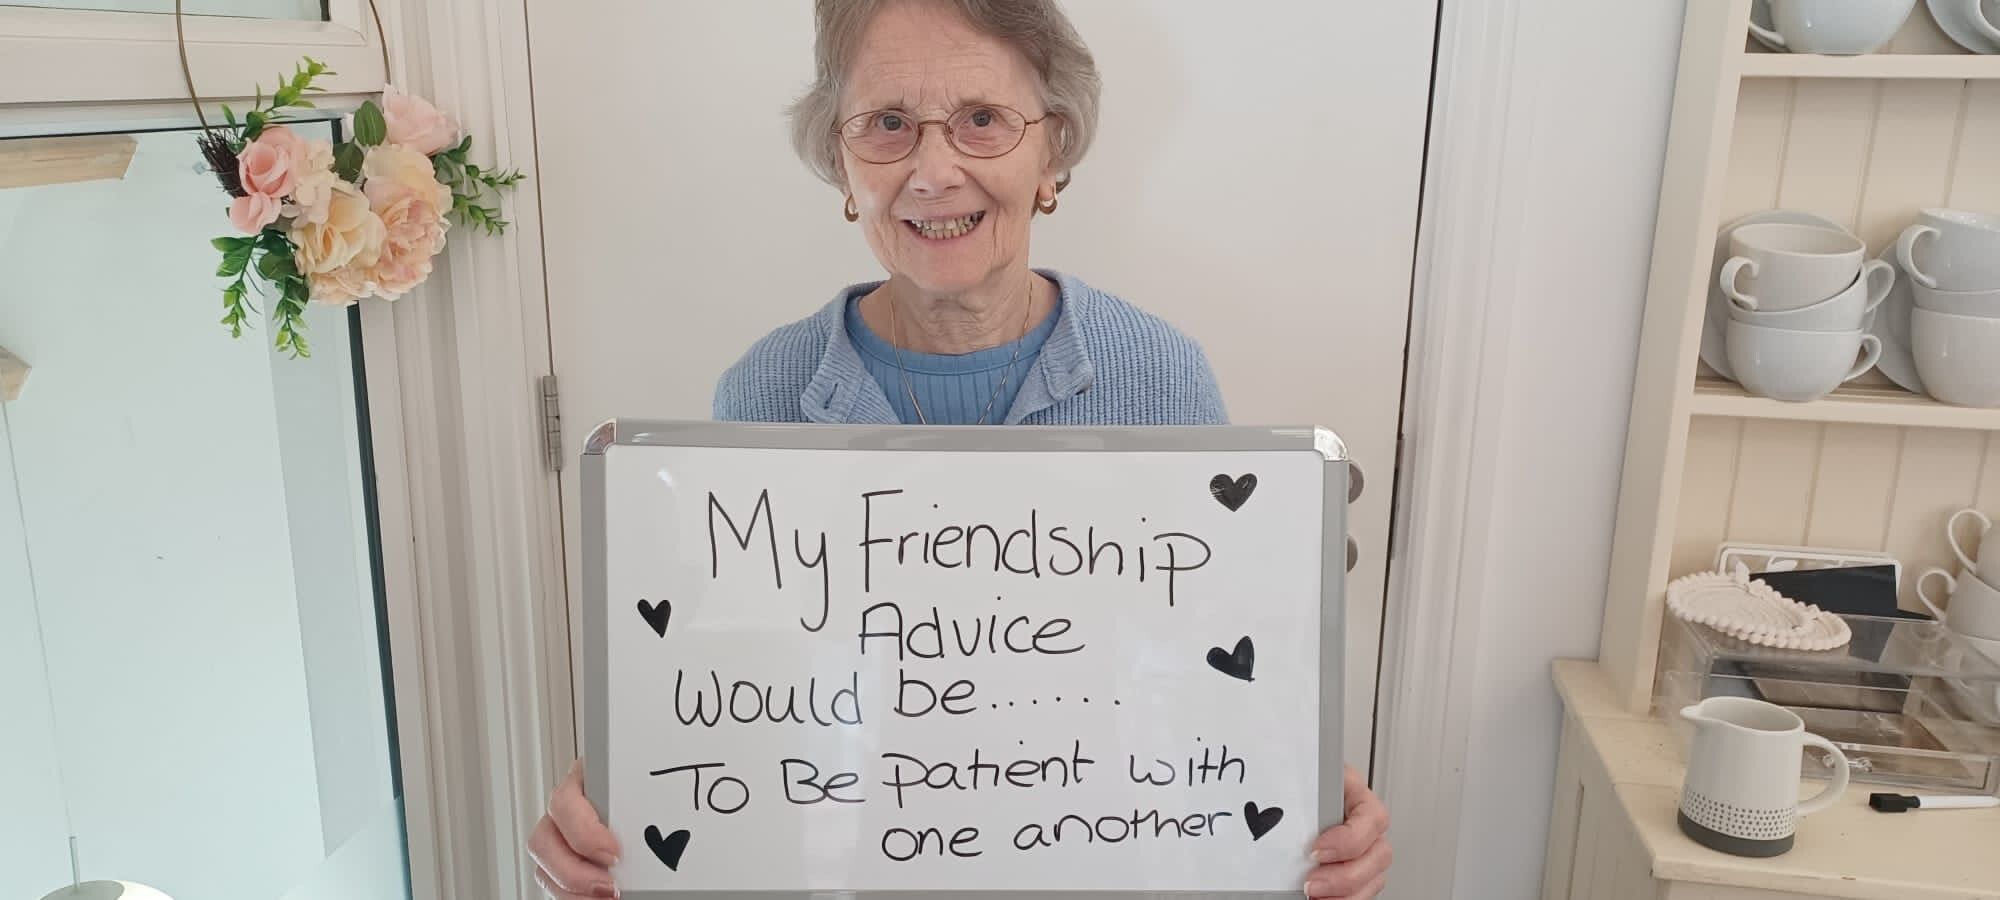 My Friendship
Advice
Would be......
To Be Patient with
one another